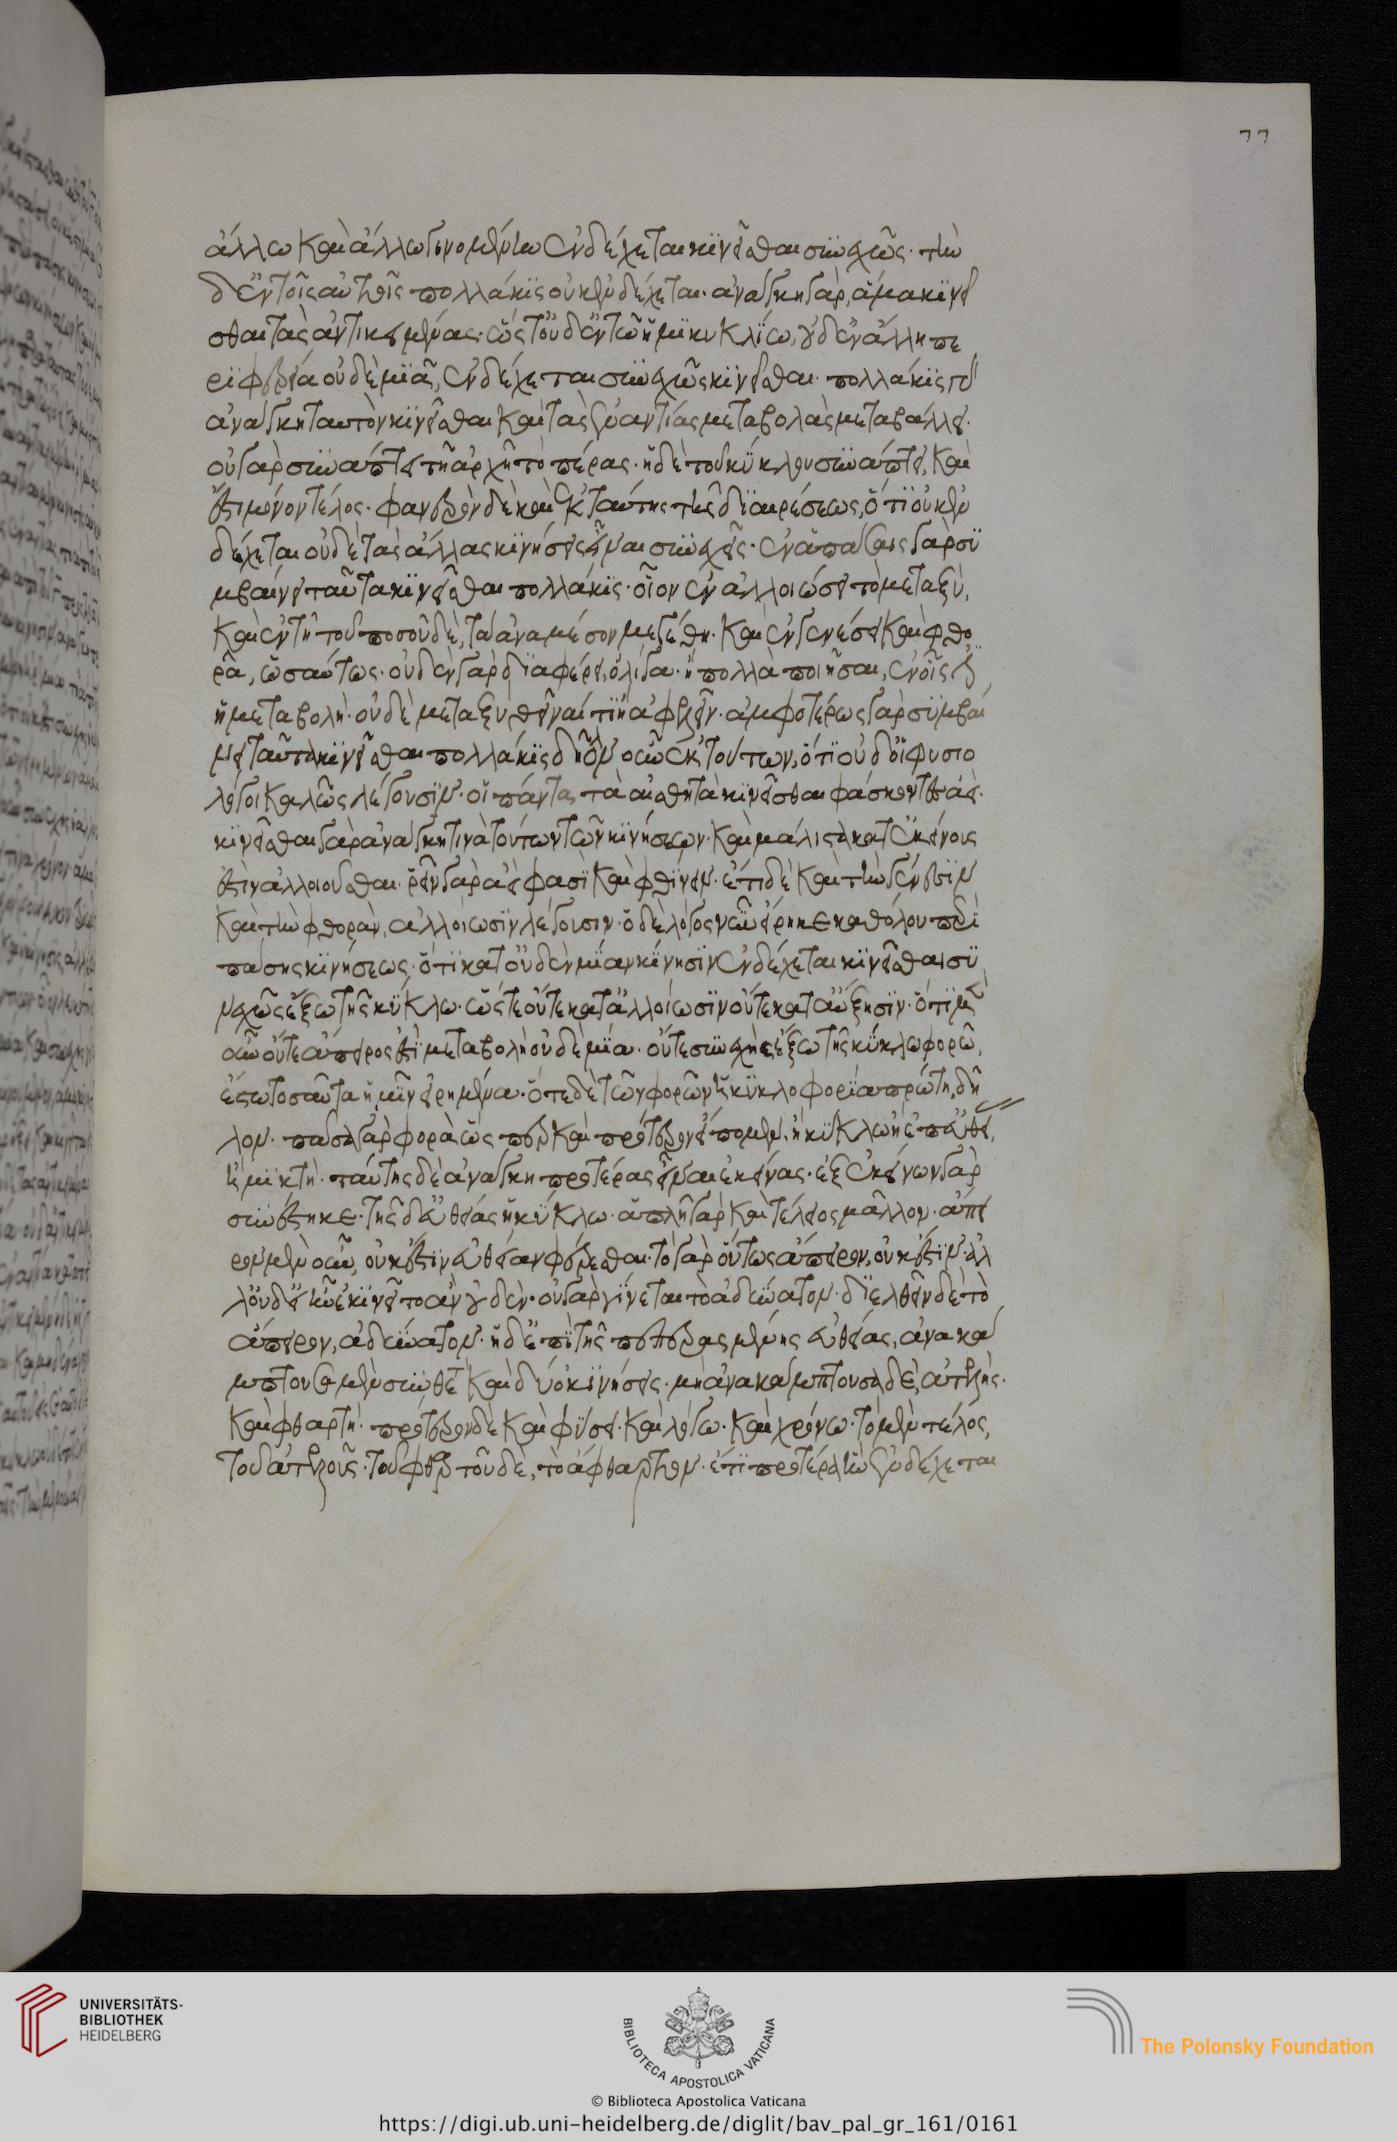 ἄλλω καὶ ἄλλω γινομένην ἐνδέχεται κινεῖσθαι συνεχῶς· τὴν
δ' ἐν τοῖς αὐτοῖς πολλάκις οὐκ ἐνδέχεται· ἀνάγκη γὰρ, ἅμα κινεῖ
σθαι τὰς ἀντικειμένας· ὥς τ' οὐδ' ἐν τῶ ἡμικυκλίω, οὐδ' ἐν ἄλλη πε
ριφερεία οὐδεμιᾶ, ἐνδέχεται συνεχῶς κινεῖσθαι· πολλάκις γὰρ
ἀνάγκη ταυτὸν κινεῖσθαι καὶ τὰς ἐναντίας μεταβολὰς μεταβάλλει·
οὐ γὰρ συνάπτει τῆ ἀρχῆ τὸ πέρας· ἡ δὲ τοῦ κύκλου συνάπτει, καὶ
ἔστι μόνον τέλος· φανερὸν δὲ καὶ ἐκ ταύτης τῆς διαιρέσεως, ὅτι οὐκ ἐν
δέχεται οὐδὲ τὰς ἄλλας κινήσεις εἶναι συνεχεῖς· ἐν ἁπάσαις γὰρ συ
μβαίνει ταῦτα κινεῖσθαι πολλάκις· οἷον ἐν ἀλλοιώσει τὸ μεταξὺ,
καὶ ἐν τῆ τοῦ ποσοῦ δὲ, τὰ ἀναμέσον μεγέθη· καὶ ἐν γενέσει καὶ φθο
ρᾶ, ὡσαύτως· οὐδὲν γὰρ διαφέρει, ὀλίγα· ἢ πολλὰ ποιῆσαι, ἐν οἷς ἐστὶν
ἡ μεταβολὴ· οὐδὲ μεταξὺ θεῖναί τι ἢ ἀφελεῖν· ἀμφοτέρως γὰρ συμβαί
νει ταῦτα κινεῖσθαι πολλάκις δῆλον οὖν ἐκ τούτων, ὅτι οὐδ' οἱ φυσιο
λόγοι καλῶς λέγουσιν· οἱ πάντα τὰ αἰσθητὰ κινεῖσθαι φάσκοντες ἀεί·
κινεῖσθαι γὰρ ἀνάγκη τινὰ τούτων τῶν κινήσεων· καὶ μάλιστα κατ' ἐκείνοις
ἐστιν ἀλλοιοῦσθαι· ῥεῖν γὰρ ἀεί φασι καὶ φθίνειν· ἔτι δὲ καὶ τὴν γένεσιν
καὶ τὴν φθορὰν, ἀλλοίωσιν λέγουσιν· ὁ δὲ λόγος νῦν εἴρηκε καθόλου περὶ
πάσης κινήσεως· ὅτι κατ' οὐδὲν μίαν κίνησιν ἐνδέχεται κινεῖσθαι συ
νεχῶς ἔξω τῆς κύκλω· ὥς τε οὔτε κατ' ἀλλοίωσιν οὔτε κατ' αὔξησιν· ὅτι μὲν
οὖν οὔτε ἄπειρος ἐστὶ μεταβολὴ οὐδὲ μία· οὔτε συνεχὴς ἔξω τῆς κύκλω φορᾶς,
ἔστω τοσαῦτα ἡμῖν εἰρημένα· ὅτι δὲ τῶν φορῶν ἡ κυκλοφορία πρώτη, δῆ
λον· πᾶσα γὰρ φορὰ ὥς περ καὶ πρότερον εἴπομεν, ἢ κύκλω ἢ ἐπ' εὐθεί,
ἢ μικτὴ· ταύτης δὲ ἀνάγκη προτέρας εἶναι ἐκείνας· ἐξ ἐκείνων γὰρ
συνέστηκε· τῆς δ' εὐθείας ἡ κύκλω· ἁπλῆ γὰρ καὶ τέλειος μᾶλλον· ἄπει
ρον μὲν οὖν, οὐκ ἔστιν εὐθεῖαν φέρεσθαι· τὸ γὰρ οὕτως ἄπειρον, οὐκ ἔστιν· ἀλ
λ' οὐδ' εἰ ἦν ἐκινεῖτο ἂν οὐδὲν· οὐ γὰρ γίνεται τὸ ἀδύνατον· διελθεῖν δὲ τὸ
ἄπειρον, ἀδύνατον· ἡ δ' ἐπὶ τῆς πεπερασμένης εὐθείας, ἀνακά
μπτουσα μὲν συνθετὴ καὶ δύο κινήσεις· μὴ ἀνακάμπτουσα δὲ, ἀτελὴς·
καὶ φθαρτὴ· πρότερον δὲ καὶ φύσει· καὶ λόγω· καὶ χρόνω· τὸ μὲν τέλος,
τοῦ ἀτελοῦς· τοῦ φθαρτοῦ δὲ, τὸ ἄφθαρτον· ἔτι προτέρα ἣν ἐνδέχεται
77
UNIVERSITÄTS-
BIBLIOTHEK
HEIDELBERG
BIBLIOTECA APOSTOLICA VATICANA
The Polonsky Foundation
© Biblioteca Apostolica Vaticana
https://digi.ub.uni-heidelberg.de/diglit/bav_pal_gr_161/0161